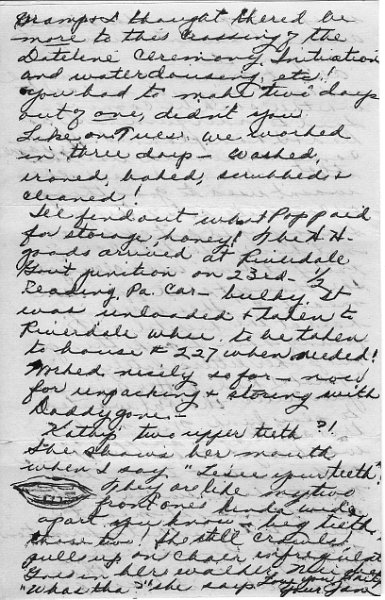 Gramp & I thought there'd be
more to this crossing of the
Dateline Ceremony, Initiation
and water dousing, etc!
You had to make two days
out of one, didn't you
Like on Tues. we worked
in three days – washed,
ironed, baked, scrubbed &
cleaned!
I'll find out what Pop paid
for storage, honey! The H.H.
goods arrived at Riverdale
Govt junction on 23rd. 1/2
Reading, Pa. Car – bulky. It
was unloaded & taken to
Riverdale whse. to be taken
to house # 227 when needed!
Worked nicely so far – now
for unpacking & storing with
Daddy gone –
Kathy's two upper teeth ?!
She shows her mouth
when I say "I see your teeth"!
They are like my two
front ones kinda wide
apart you know – big teeth
those two! She still crawls,
pulls up on chair
Goes in her walker
"Whas tha?" she says Love you
Your Jane